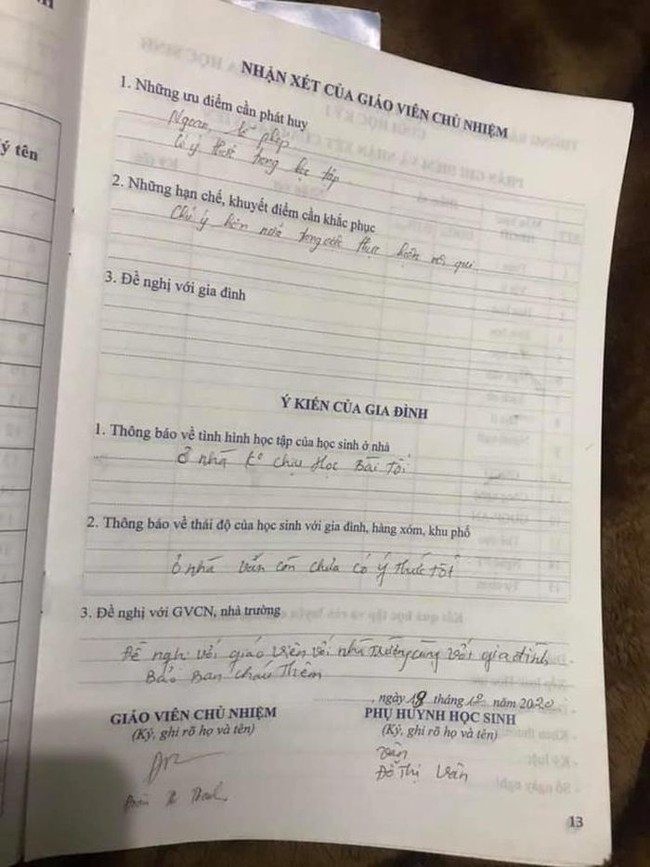 ý tên
NHẬN XÉT CỦA GIÁO VIÊN CHỦ NHIỆM
1. Những ưu điểm cần phát huy
Ngoan, lễ phép
Có ý thức trong học tập
2. Những hạn chế, khuyết điểm cần khắc phục
Chú ý hơn nữa trong việc thực hiện nội qui.
3. Đề nghị với gia đình
Ý KIẾN CỦA GIA ĐÌNH
1. Thông báo về tình hình học tập của học sinh ở nhà
Ở nhà ko chịu Học Bài Tối
2. Thông báo về thái độ của học sinh với gia đình, hàng xóm, khu phố
Ở nhà vẫn còn chưa có ý thức tốt
3. Đề nghị với GVCN, nhà trường
Đề nghị với giáo viên với nhà Trường cùng với gia đình
Bảo Ban cháu Thêm
, ngày 18 tháng 12 năm 2020
GIÁO VIÊN CHỦ NHIỆM
(Ký, ghi rõ họ và tên)
PHỤ HUYNH HỌC SINH
(Ký, ghi rõ họ và tên)
Vân
Đỗ Thị Vân
13